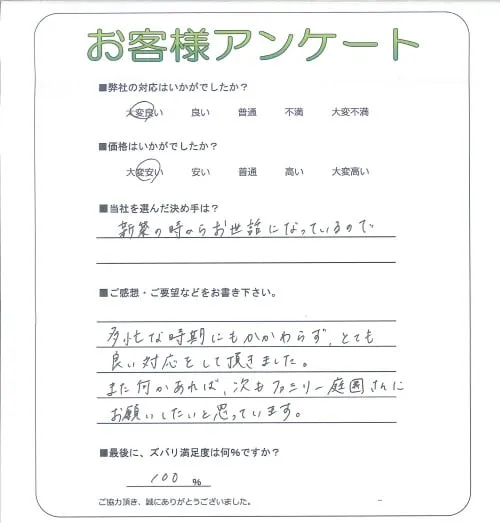 お客様アンケート
■弊社の対応はいかがでしたか？
大変良い 良い 普通 不満 大変不満
■価格はいかがでしたか？
大変安い 安い 普通 高い 大変高い
■当社を選んだ決め手は？
新築の時からお世話になっているので
■ご感想・ご要望などをお書き下さい。
多忙な時期にもかかわらず、とても
良い対応をして頂きました。
また何かあれば、次もファミリー庭園さんに
お願いしたいと思っています。
■最後に、ズバリ満足度は何%ですか？
100 %
ご協力頂き、誠にありがとうございました。